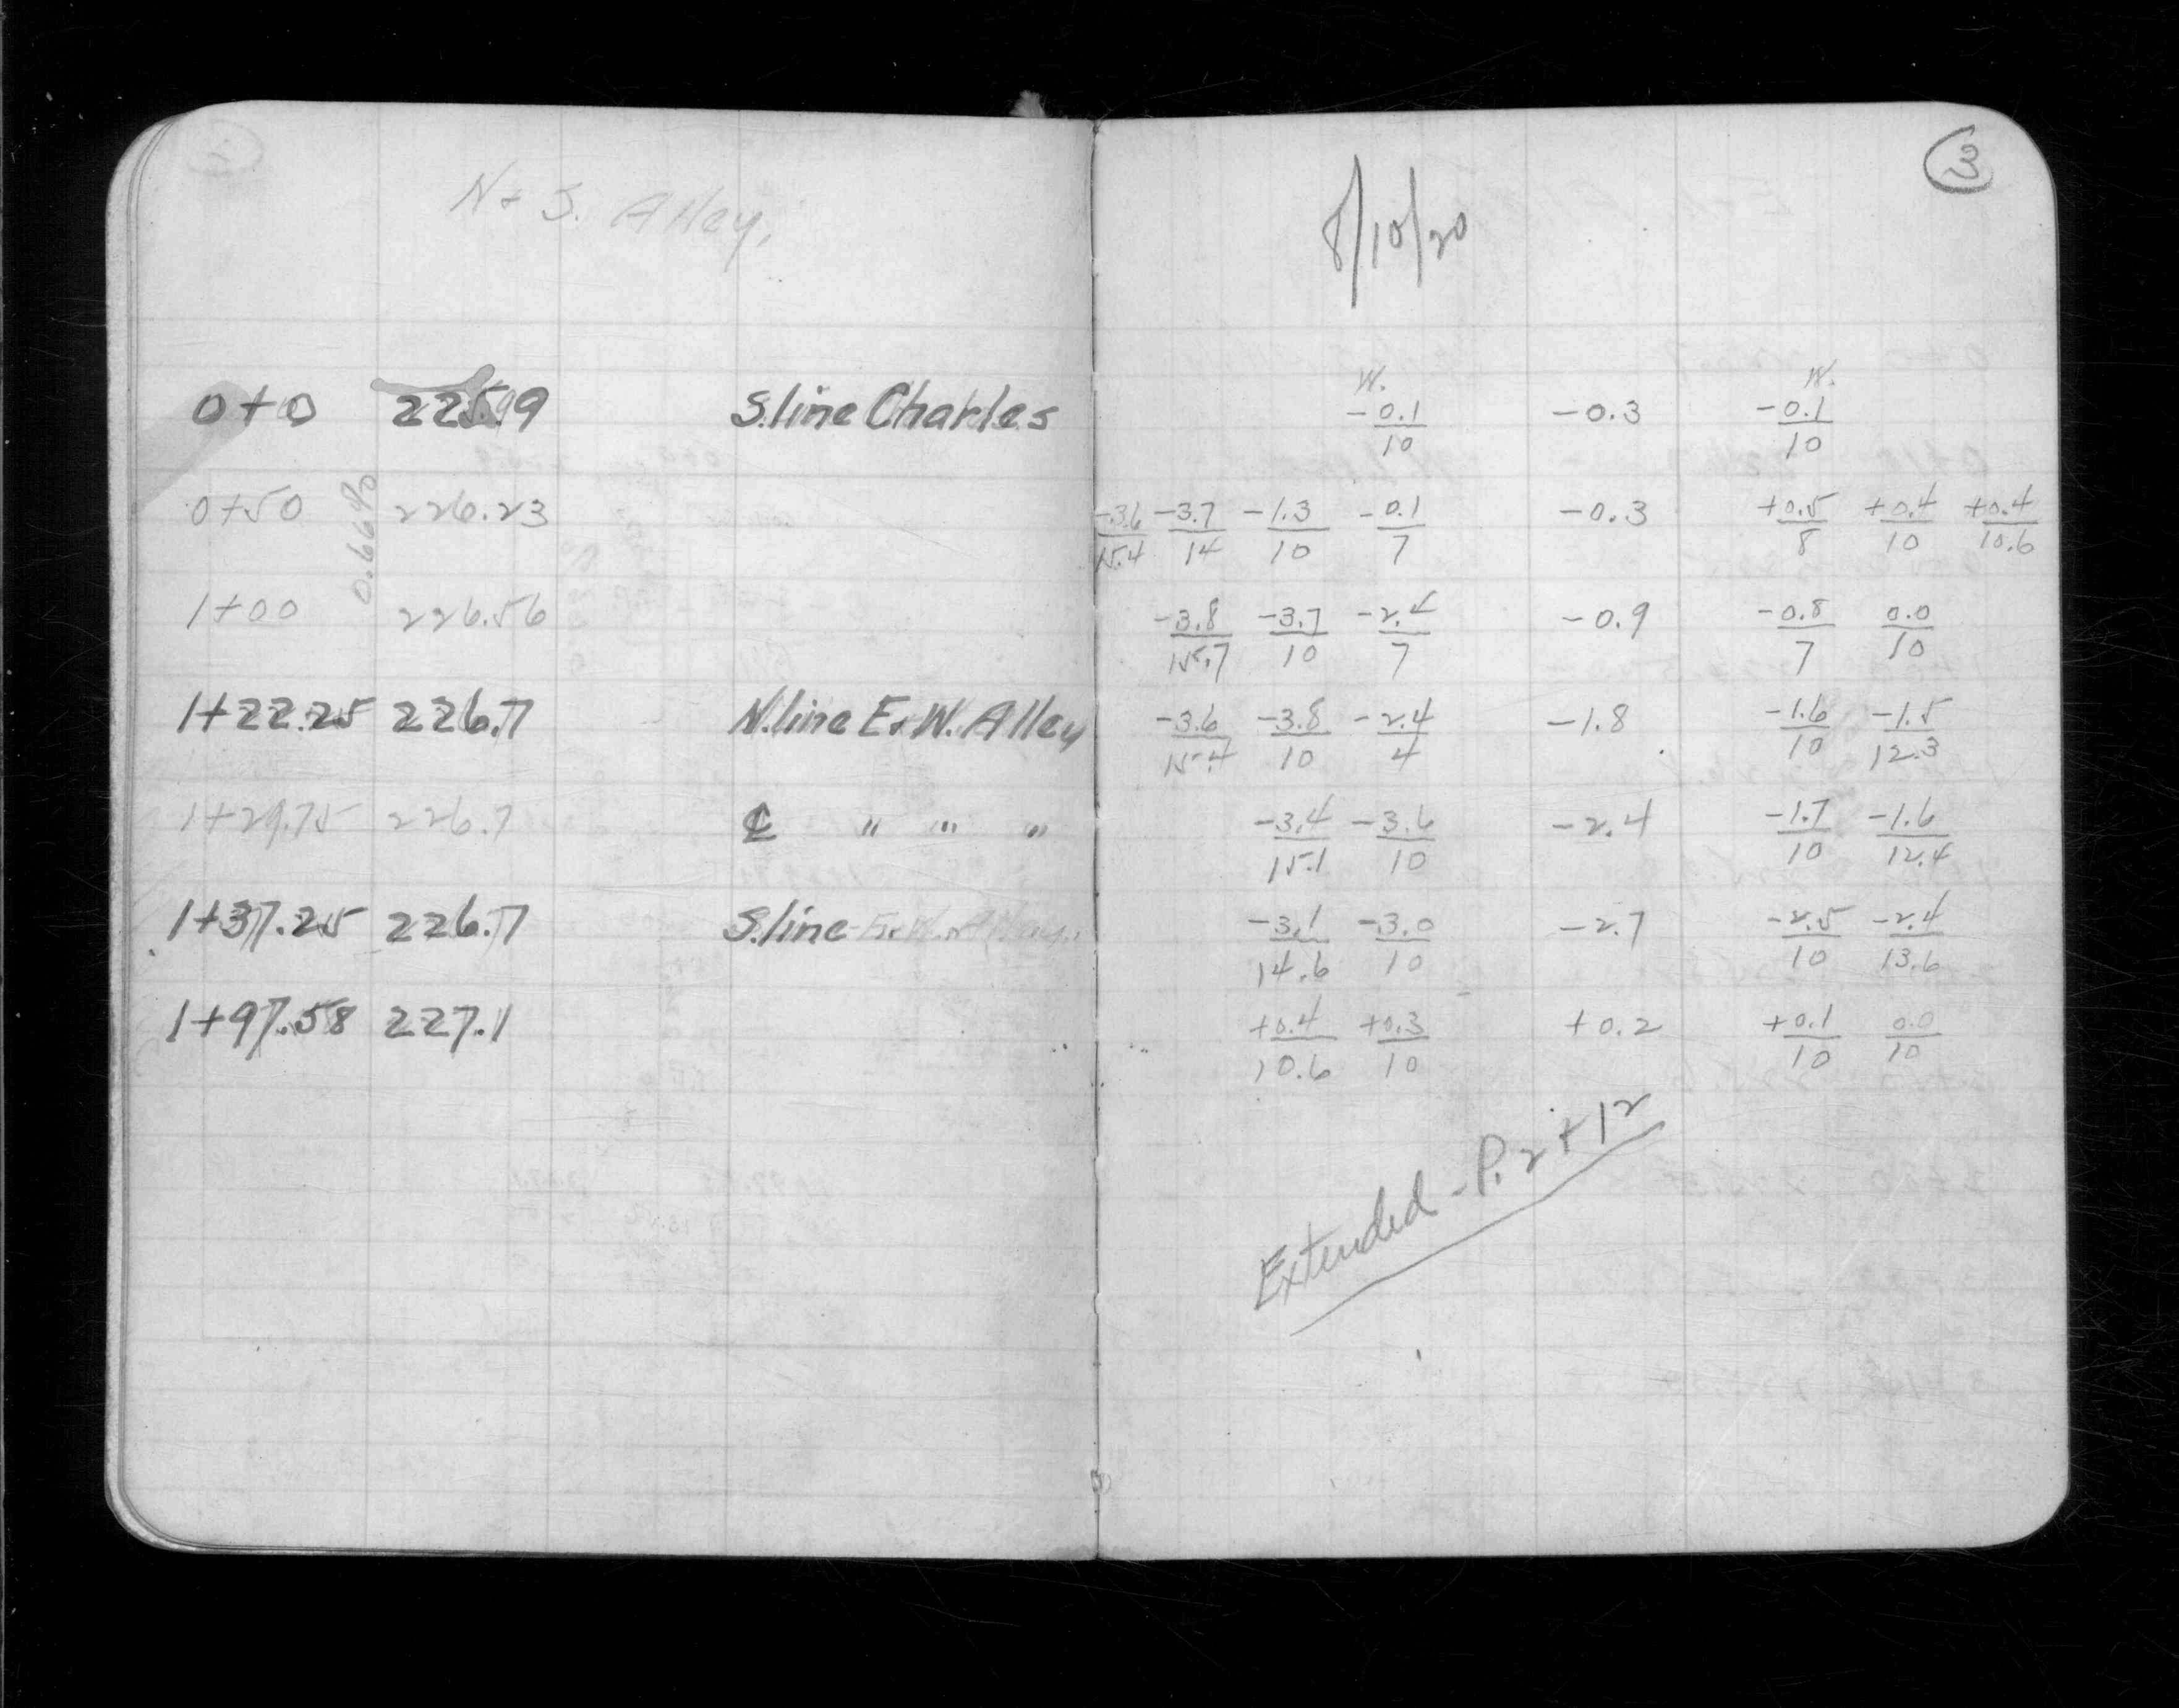 3
N & S. Alley.
8/10/20
W. W.
0+0 225.99 S. line Charles -0.1/10 -0.3 -0.1/10
0+50 226.23 -3.6/15.4 -3.7/14 -1.3/10 -0.1/7 -0.3 +0.5/8 +0.4/10 +0.4/10.6
0.66%
1+00 226.56 -3.8/15.7 -3.7/10 -2.4/7 -0.9 -0.8/7 0.0/10
1+22.25 226.7 N. line E & W. Alley -3.6/15.4 -3.8/10 -2.4/4 -1.8 -1.6/10 -1.5/12.3
1+29.75 226.7 ℄ " " " -3.4/15.1 -3.6/10 -2.4 -1.7/10 -1.6/12.4
1+37.25 226.7 S. line E & W. Alley. -3.1/14.6 -3.0/10 -2.7 -2.5/10 -2.4/13.6
1+97.58 227.1 +0.4/10.6 +0.3/10 +0.2 +0.1/10 0.0/10
Extended - P. 2 + 12